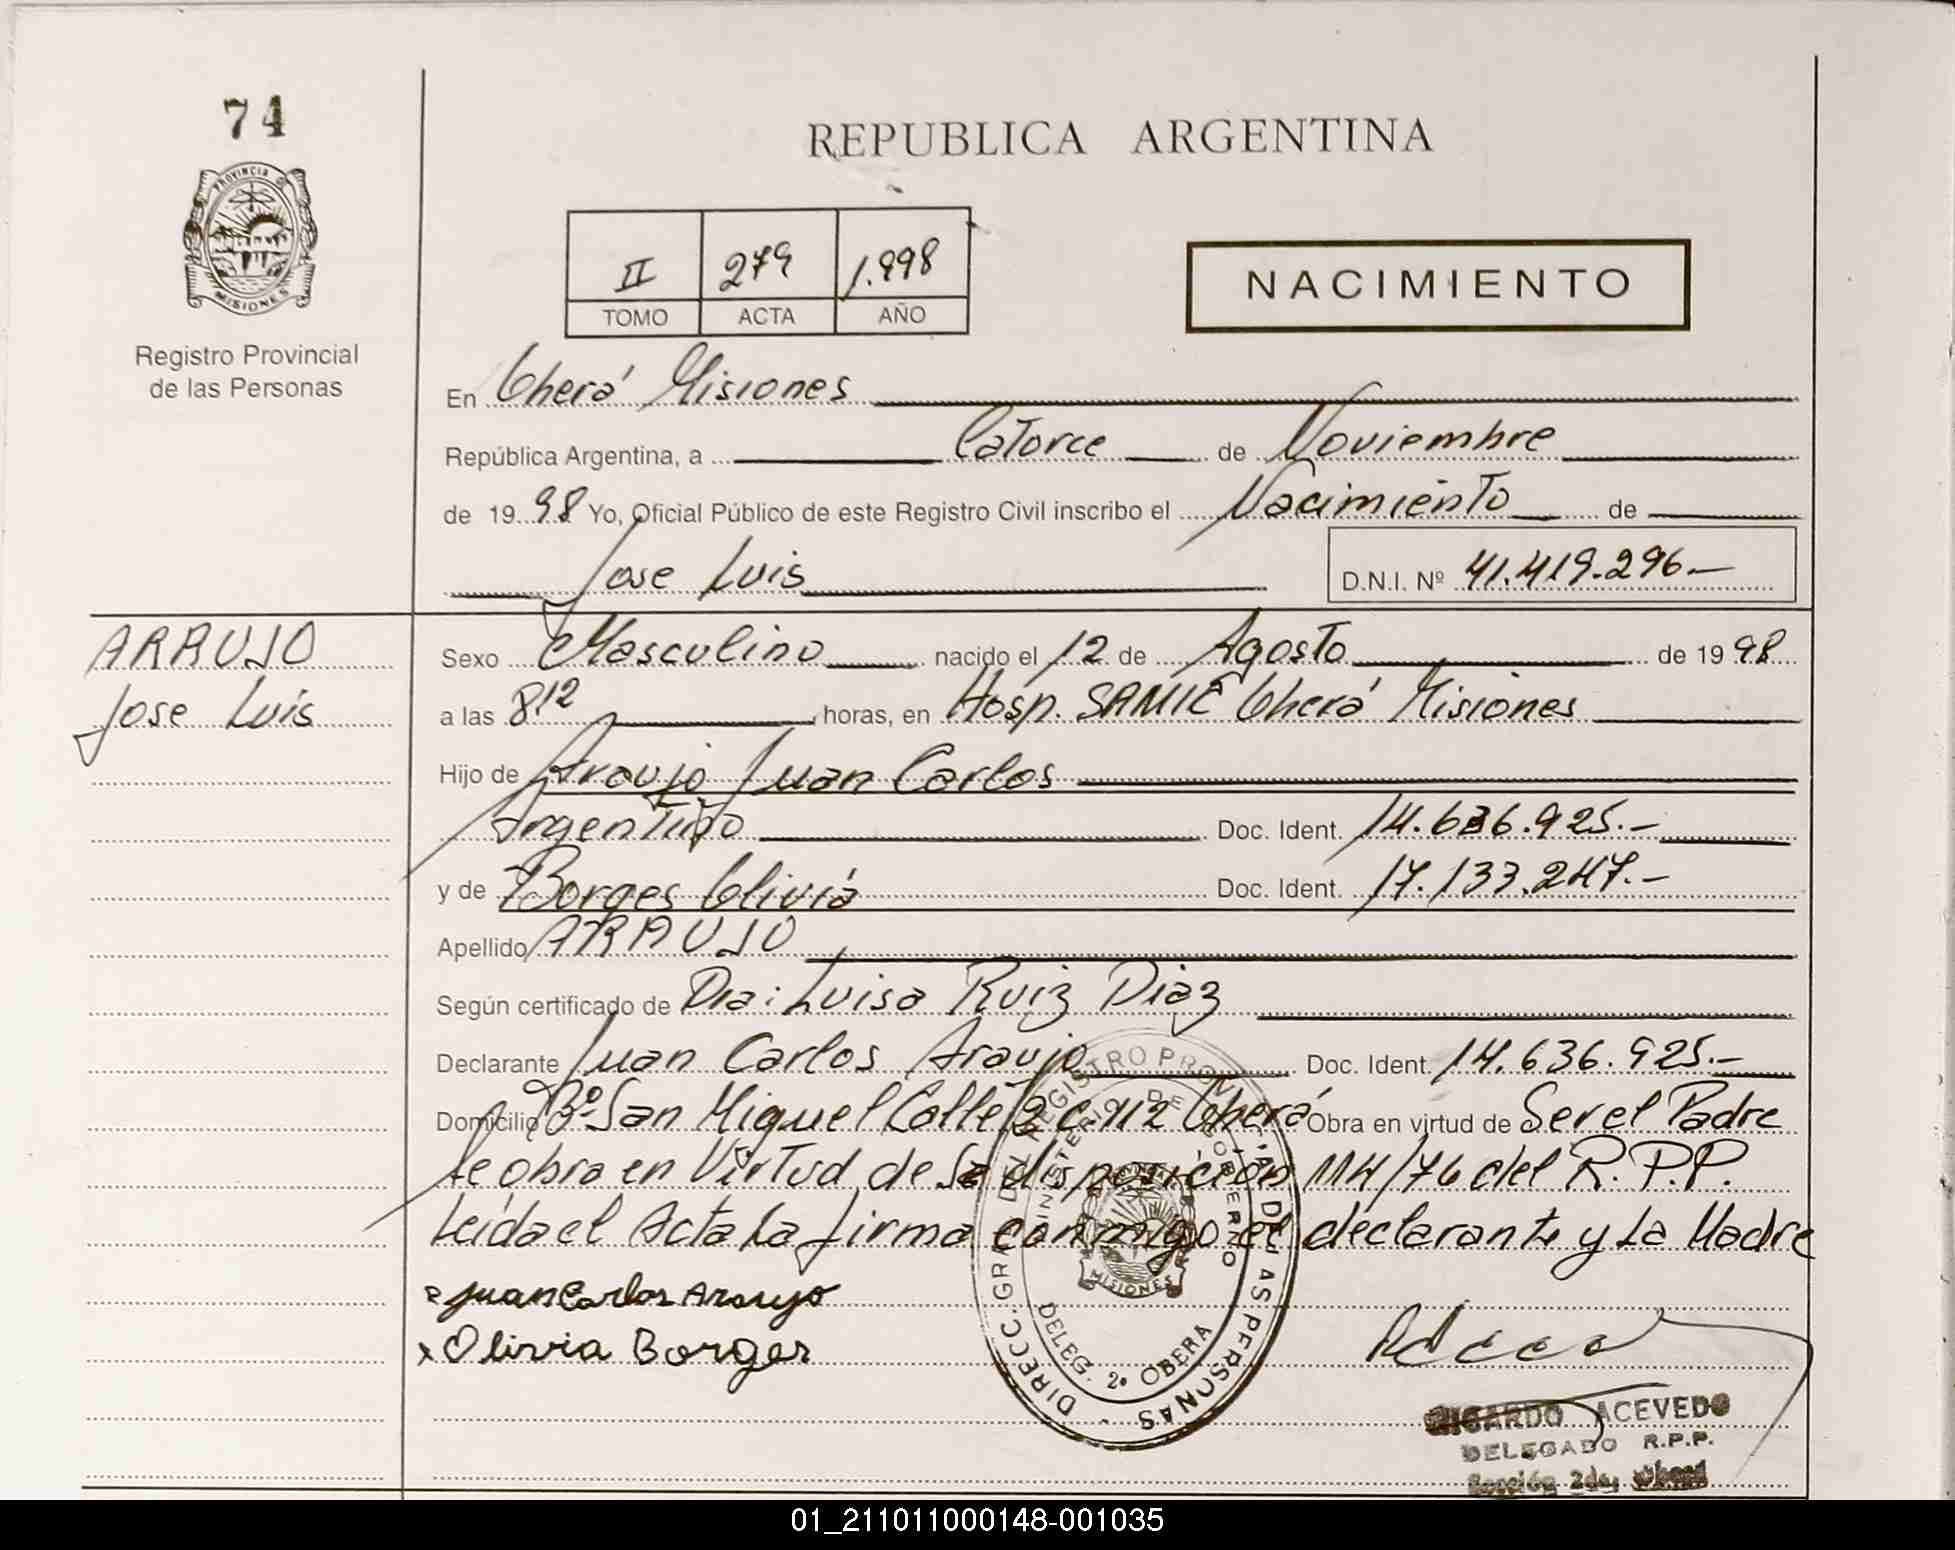 74
PROVINCIA DE
MISIONES
Registro Provincial
de las Personas
REPUBLICA ARGENTINA
II 279 1.998
TOMO ACTA AÑO
NACIMIENTO
En Oberá Misiones
República Argentina, a Catorce de Noviembre
de 19 98 Yo, Oficial Público de este Registro Civil inscribo el Nacimiento de
Jose Luis D.N.I. Nº 41.419.296.-
ARAUJO
Jose Luis
Sexo Masculino nacido el 12 de Agosto de 19 98
a las 8¹² horas, en Hosp. SAMIC Oberá Misiones
Hijo de Araujo Juan Carlos
Argentino Doc. Ident. 14.636.925.-
y de Borges Olivia Doc. Ident. 17.133.247.-
Apellido ARAUJO
Según certificado de Dra: Luisa Ruiz Diaz
Declarante Juan Carlos Araujo Doc. Ident. 14.636.925.-
Domicilio Bº San Miguel Calle 2 C. 112 Oberá Obra en virtud de Ser el Padre
Se obra en Virtud de la disposición 114/76 del R.P.P.
Leida el Acta La firma conmigo el declarante y La Madre
Juan Carlos Araujo
x Olivia Borges
DIRECC. GRAL. DEL REGISTRO PROVINCIAL DE LAS PERSONAS
MINISTERIO DE GOBIERNO
MISIONES
DELEG. 2º OBERA
RICARDO ACEVEDO
DELEGADO R.P.P.
Sección 2da, Oberá
01_211011000148-001035